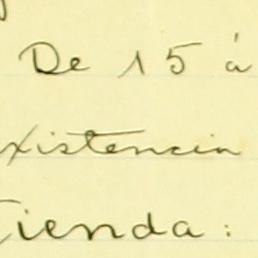 De 15 á
xistencia
Tienda: